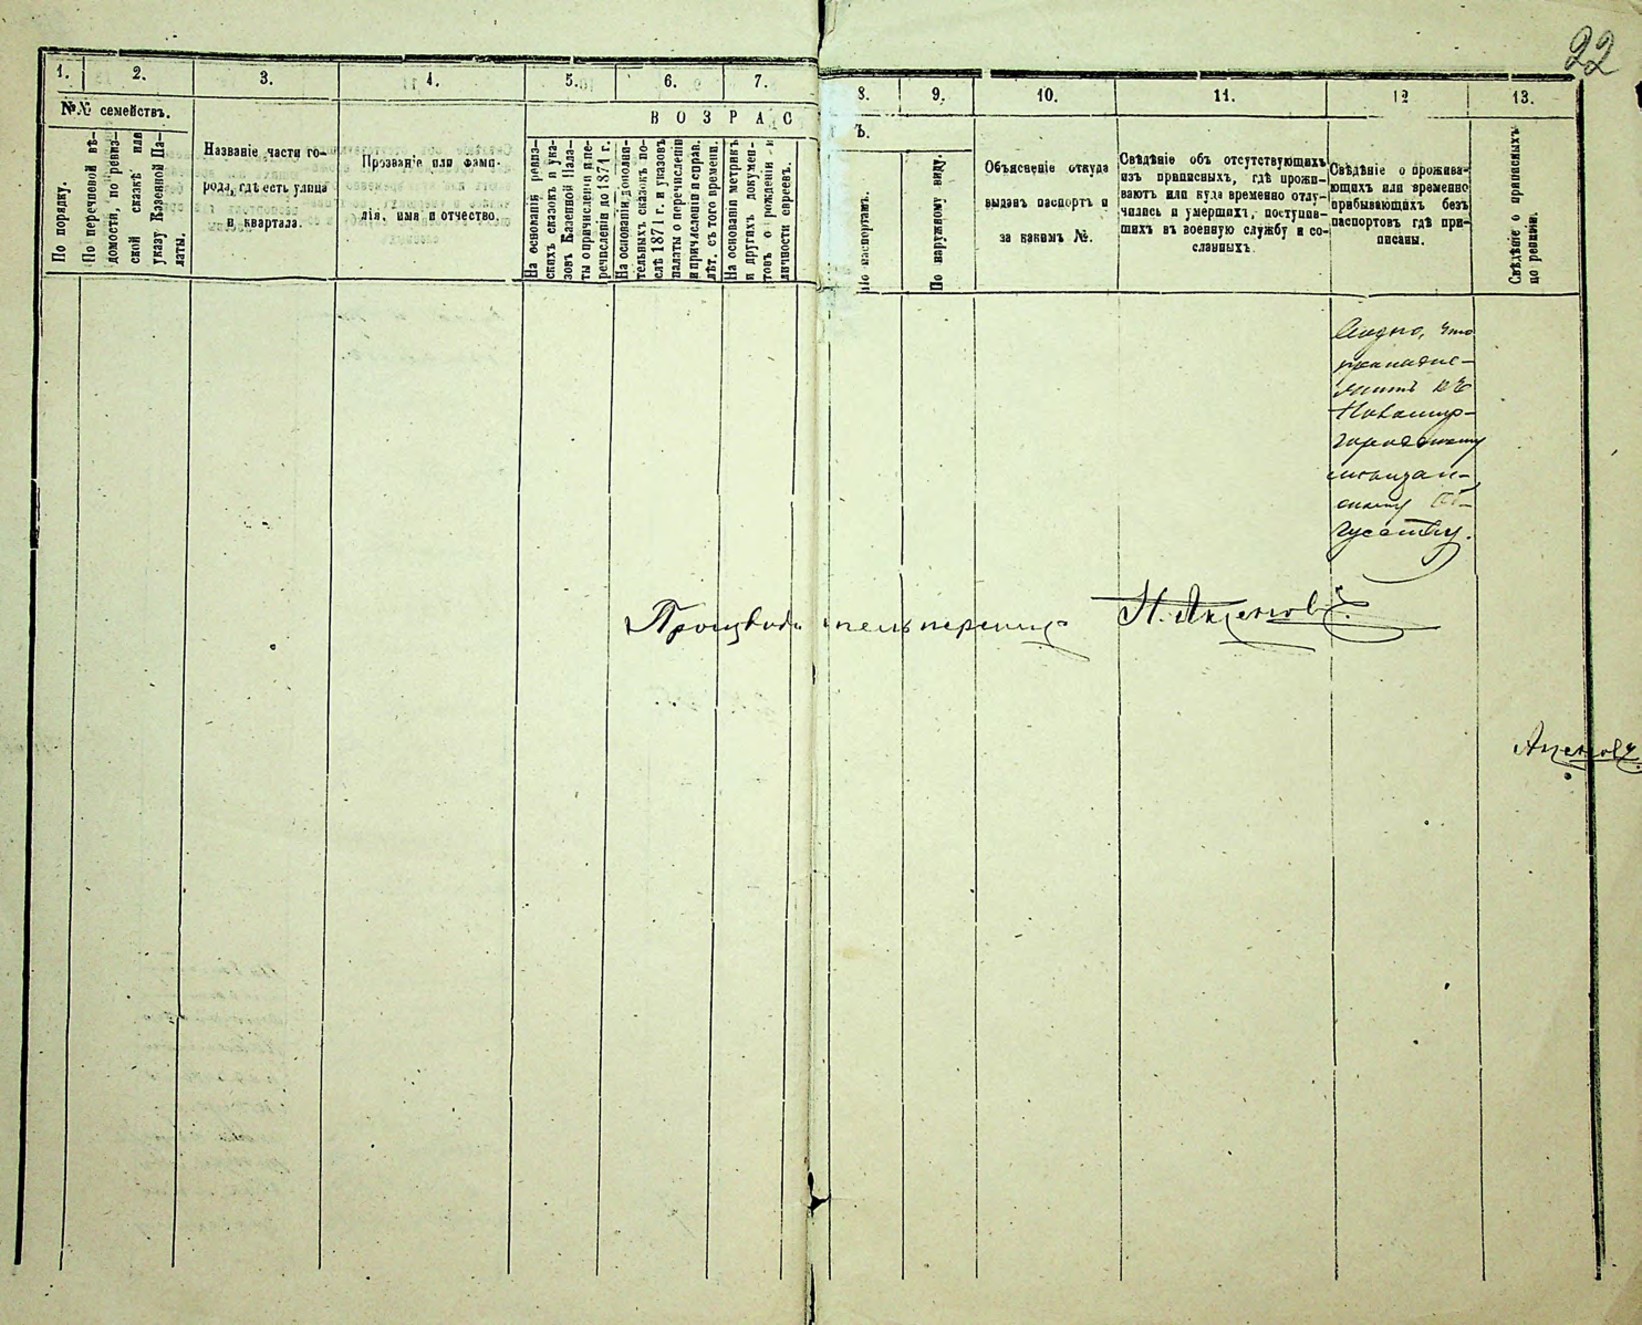 22
1. 2. 3. 4. 5. 6. 7. 8. 9. 10. 11. 12 13.
№№ семействъ.
По порядку.
По перечневой вѣ-
домости, по ревиз-
ской сказкѣ или
указу Казенной Па-
латы.
Названіе части го-
рода, гдѣ есть улица
и квартала.
Прозваніе или фами-
лія, имя и отчество.
ВОЗРАС
Ъ.
На основаніи ревиз-
скихъ сказокъ и ука-
зовъ Казенной Пала-
ты о причисленіи и пе-
речисленіи до 1871 г.
На основаніи дополни-
тельныхъ сказокъ по-
слѣ 1871 г. и указовъ
палаты о перечисленіи
и причисленіи и справ.
лѣт. съ того времени.
На основаніи метрикъ
и другихъ докумен-
товъ о рожденіи и
личности евреевъ.
По паспортамъ.
По наружному виду.
Объясненіе откуда
выданъ паспортъ и
за какимъ №.
Свѣдѣніе объ отсутствующихъ
изъ приписныхъ, гдѣ прожи-
ваютъ или куда временно отлу-
чились и умершихъ, поступив-
шихъ въ военную службу и со-
сланныхъ.
Свѣдѣніе о прожива-
ющихъ или временно
прибывающихъ безъ
паспортовъ гдѣ при-
писаны.
Свѣдѣніе о приписныхъ
по ревизіи.
что
къ
Новомир-
городскому
мѣщан-
скому
Производитель переписи Н. Аксеновъ.
Аксеновъ.